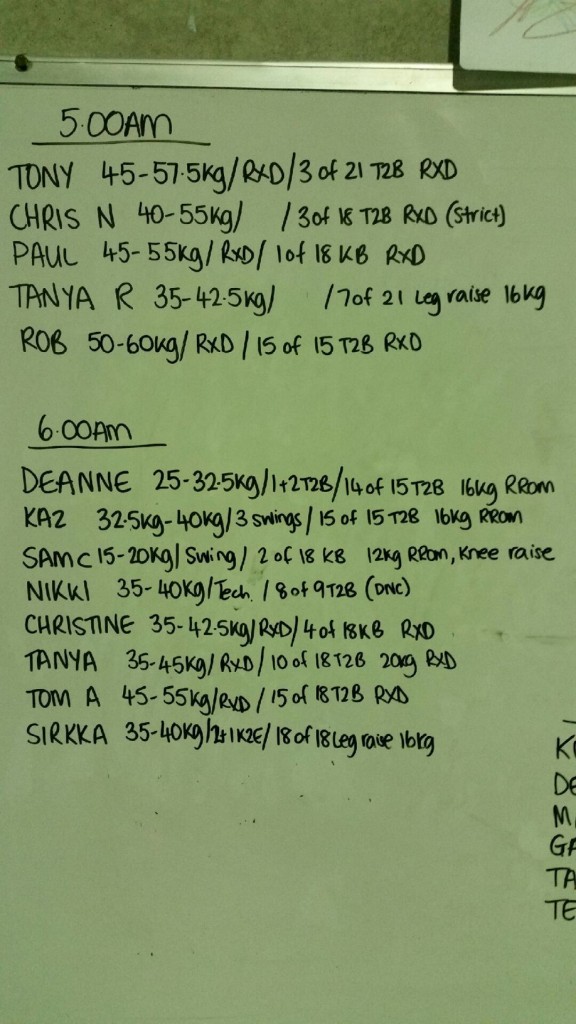 5.00AM
TONY 45-57.5kg/RXD/3 of 21 T2B RXD
CHRIS N 40-55kg/ /3of 18 T2B RXD (Strict)
PAUL 45-55kg/RXD/1of 18 KB RXD
TANYA R 35-42.5kg/ /7of 21 Leg raise 16kg
ROB 50-60kg/RXD/15 of 15 T2B RXD
6.00AM
DEANNE 25-32.5kg/1+2T2B/14of 15 T2B 16kg RRom
KAZ 32.5kg-40kg/3 swings/15 of 15 T2B 16kg RROM
SAM C 15-20kg/Swing/2 of 18 KB 12kg RRom, Knee raise
NIKKI 35-40kg/Tech./8of 9T2B (DNC)
CHRISTINE 35-42.5kg/RXD/4of 18KB RXD
TANYA 35-45kg/RXD/10 of 18T2B 20kg RXD
TOM A 45-55kg/RXD/15of 18T2B RXD
SIRKKA 35-40kg/2+1K2E/18of 18Leg raise 16kg
DE
M
GA
TA
TE